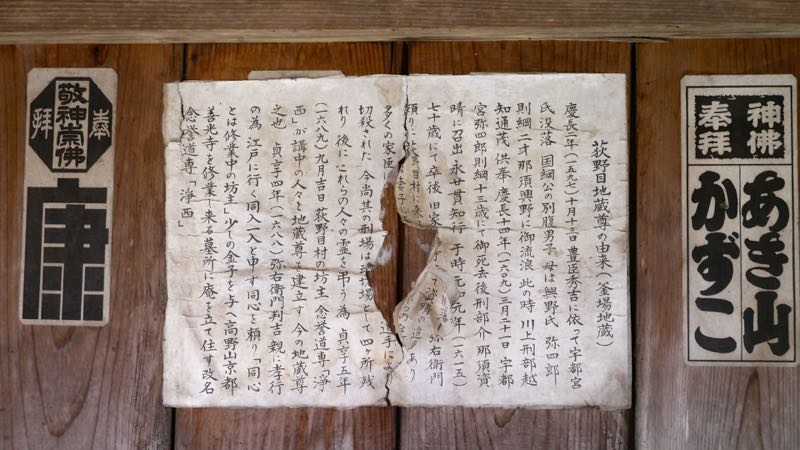 荻野目地蔵尊の由来(釜場地蔵)
慶長二年(一五九七)十月十三日豊臣秀吉に依って宇都宮
氏没落 国綱公の別腹男子 母は興野氏 弥四郎
則綱二才那須興野に御流浪 此の時 川上刑部越
知通茂 供奉 慶長十四年(一六〇九)三月二十一日 宇都
宮弥四郎則綱十三歳にて御死去後刑部介 那須資
晴に召出 永廿貫知行 于時元和元年(一六一五)
七十歳にて卒後 旧家 弥右衛門
頼りに 目村に来 あり
多くの家臣 追手により
切殺された 今尚其の刑場は 場として四ヶ所残
れり 後にこれらの人々の霊を弔う為 貞享五年
(一六八九)九月吉日 荻野目村の坊主 念誉道専「浄
西」が講中の人々と地蔵尊を建立す 今の地蔵尊
之也 貞享四年(一六八八)弥右衛門判吉 親に孝行
の為 江戸に行く同入一入と申す同心を頼り「同心
とは修業中の坊主」少しの金子を与へ高野山京都
善光寺を修業し来る墓所に庵を立て住す改名
念誉道専「浄西」
奉拝
敬神崇佛
康
神佛
奉拝
あき山
かずこ